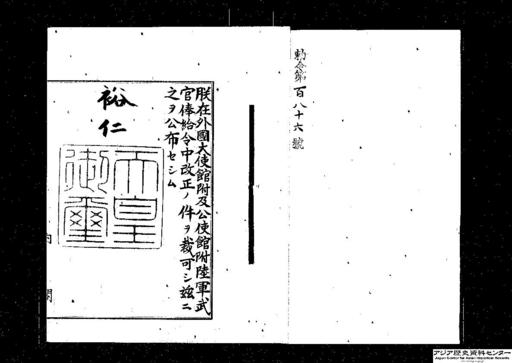 勅令第百八十六號
朕在外國大使館附及公使館附陸軍武
官俸給令中改正ノ件ヲ裁可シ茲ニ
之ヲ公布セシム
裕仁
天皇
御璽
内閣
アジア歴史資料センター
Japan Center for Asian Historical Records